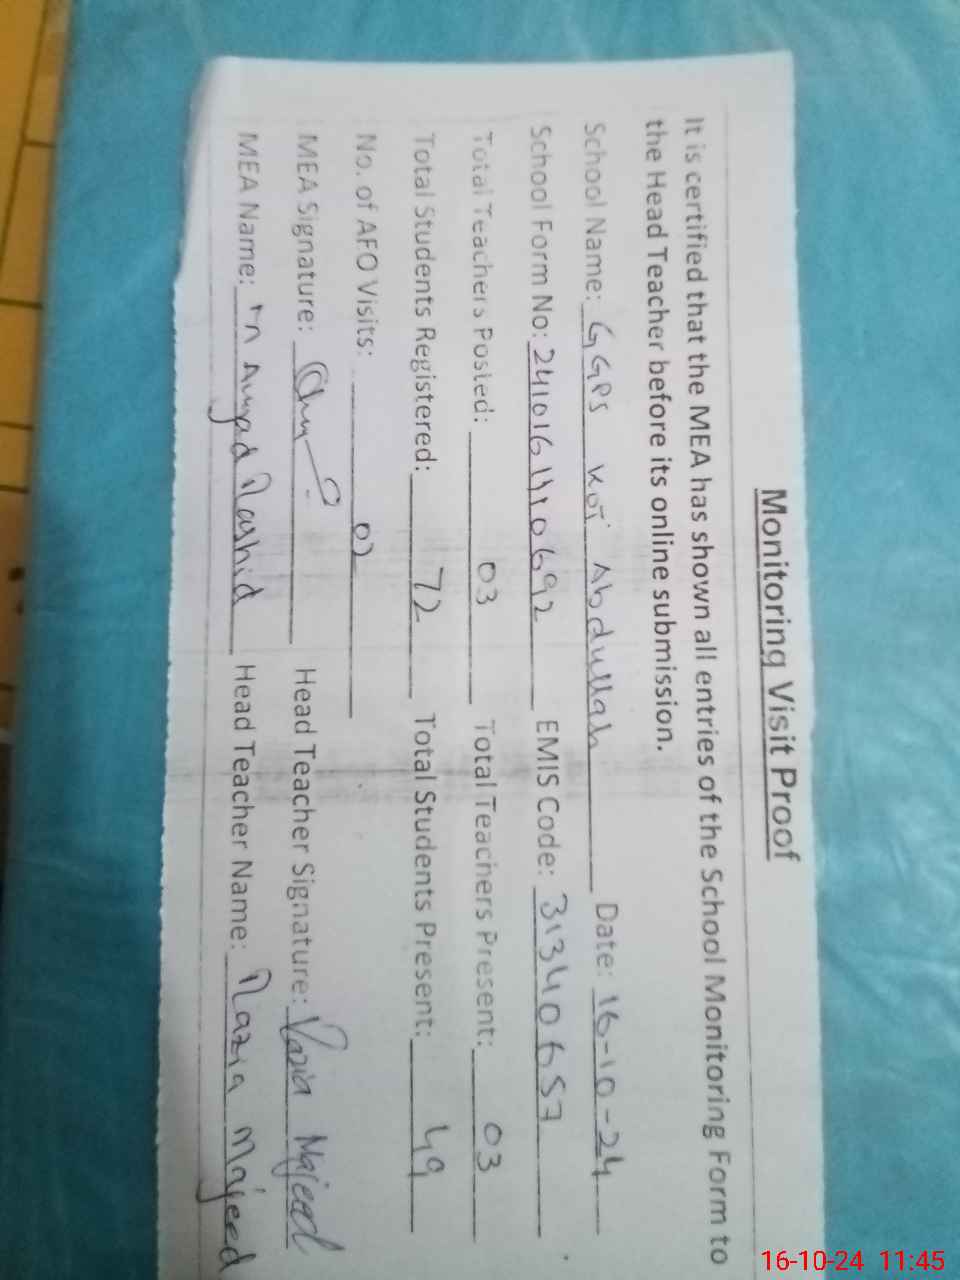 Monitoring Visit Proof
It is certified that the MEA has shown all entries of the School Monitoring Form to
the Head Teacher before its online submission.
School Name: GGPS KOT Abdullah Date: 16-10-24
School Form No: 24101614110692 EMIS Code: 31340657
Total Teachers Posted: 03 Total Teachers Present: 03
Total Students Registered: 72 Total Students Present: 49
No. of AFO Visits: 02
MEA Signature: Head Teacher Signature: Nazia Majeed
MEA Name: M Amjad Rashid Head Teacher Name: Nazia Majeed
16-10-24 11:45